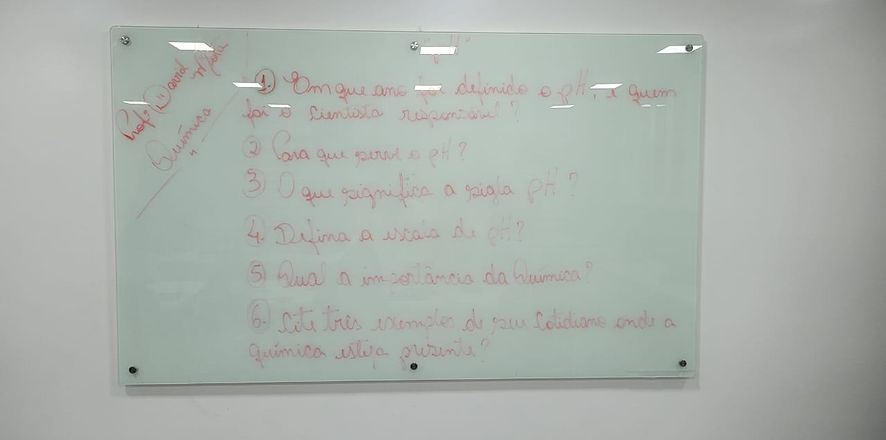 "pH"
Prof: David
Química
1. Em que ano foi definido o pH, e quem
foi o Cientista responsável?
2 Para que serve o pH?
3 O que significa a sigla pH?
4. Defina a escala de pH?
5 Qual a importância da Química?
6. Cite três exemplos de seu Cotidiano onde a
química esteja presente?